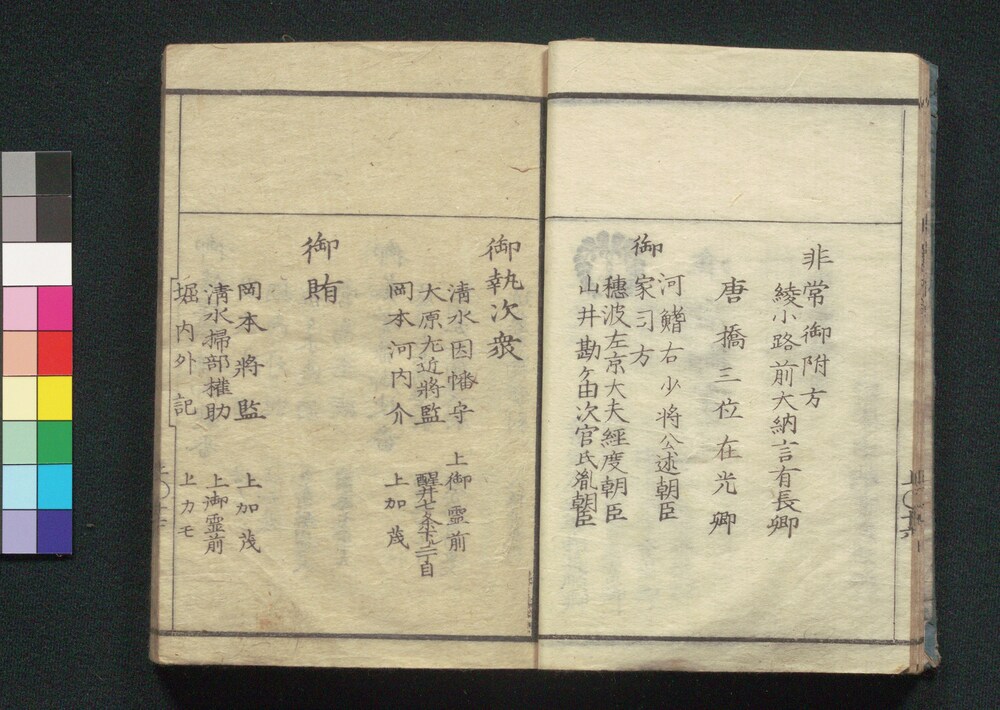 非常御附方
綾小路前大納言有長卿
唐橋三位在光卿
御家司方
河鰭右少将公述朝臣
穗波左京大夫經度朝臣
山井勘ケ由次官氏胤朝臣
御執次衆
清水因幡守 上御霊前
大原左近將監 醒井七条下ル二丁目
岡本河内介 上加茂
御賄
岡本將監 上加茂
清水掃部權助 上御霊前
堀内外記 上カモ